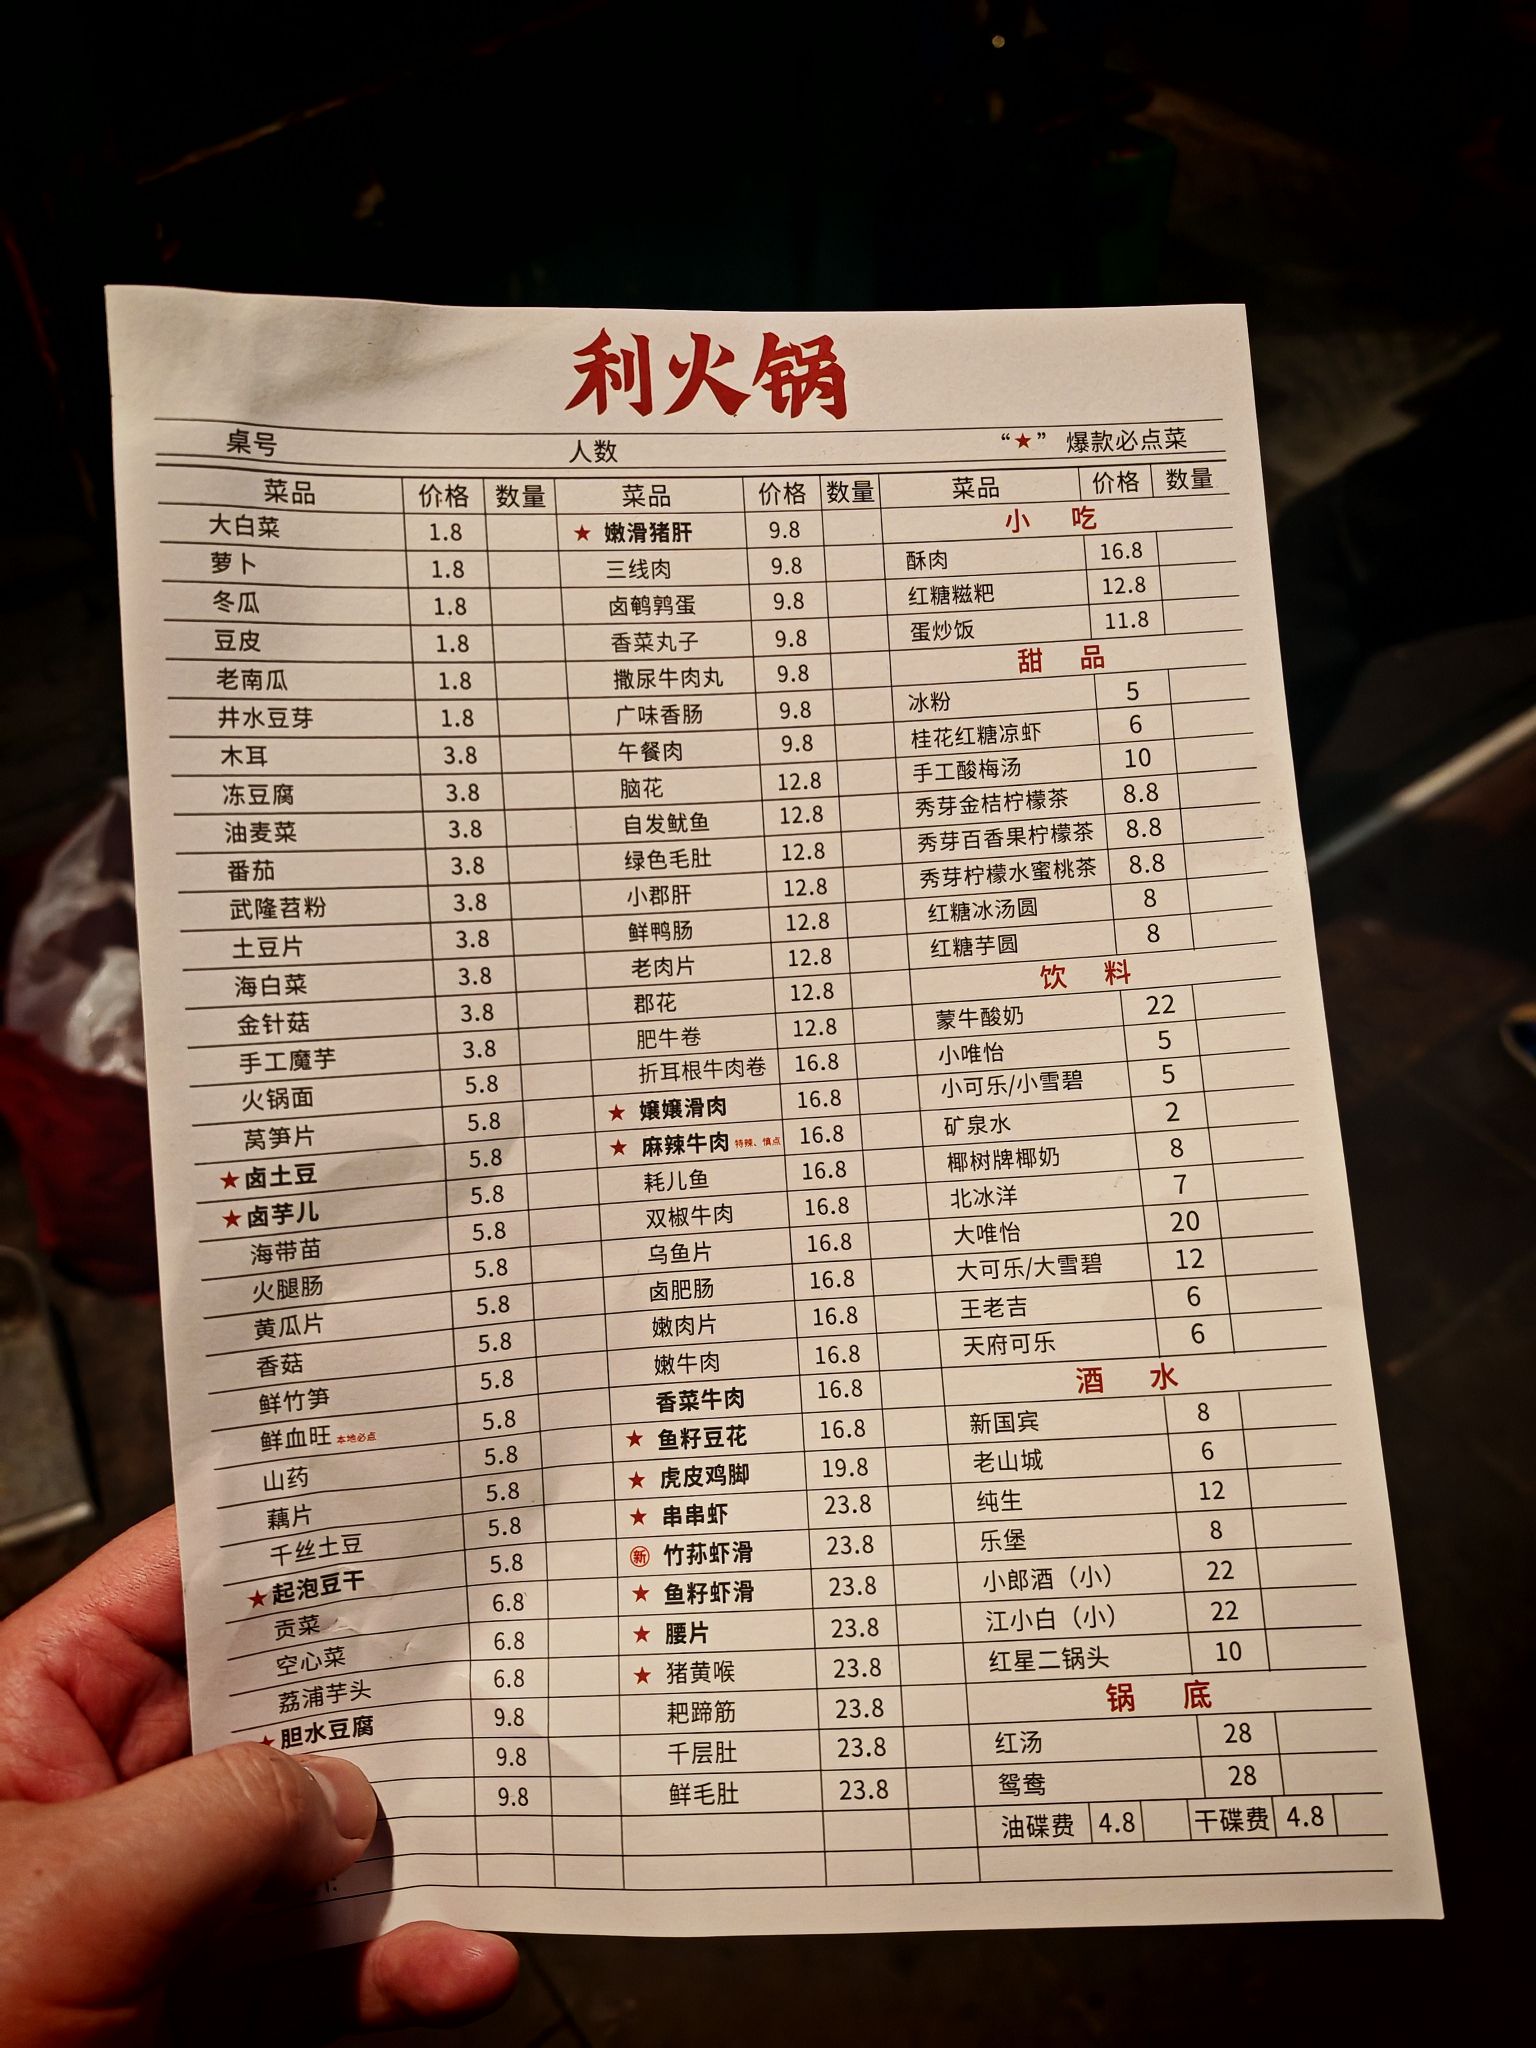 利火锅
桌号 人数 “★” 爆款必点菜
菜品 价格 数量
大白菜 1.8
萝卜 1.8
冬瓜 1.8
豆皮 1.8
老南瓜 1.8
井水豆芽 1.8
木耳 3.8
冻豆腐 3.8
油麦菜 3.8
番茄 3.8
武隆苕粉 3.8
土豆片 3.8
海白菜 3.8
金针菇 3.8
手工魔芋 3.8
火锅面 5.8
莴笋片 5.8
★卤土豆 5.8
★卤芋儿 5.8
海带苗 5.8
火腿肠 5.8
黄瓜片 5.8
香菇 5.8
鲜竹笋 5.8
鲜血旺 本地必点 5.8
山药 5.8
藕片 5.8
千丝土豆 5.8
★起泡豆干 5.8
贡菜 6.8
空心菜 6.8
荔浦芋头 6.8
★胆水豆腐 9.8
9.8
9.8
菜品 价格 数量
★ 嫩滑猪肝 9.8
三线肉 9.8
卤鹌鹑蛋 9.8
香菜丸子 9.8
撒尿牛肉丸 9.8
广味香肠 9.8
午餐肉 9.8
脑花 12.8
自发鱿鱼 12.8
绿色毛肚 12.8
小郡肝 12.8
鲜鸭肠 12.8
老肉片 12.8
郡花 12.8
肥牛卷 12.8
折耳根牛肉卷 16.8
★ 嬢嬢滑肉 16.8
★ 麻辣牛肉 特辣、慎点 16.8
耗儿鱼 16.8
双椒牛肉 16.8
乌鱼片 16.8
卤肥肠 16.8
嫩肉片 16.8
嫩牛肉 16.8
香菜牛肉 16.8
★ 鱼籽豆花 16.8
★ 虎皮鸡脚 19.8
★ 串串虾 23.8
新 竹荪虾滑 23.8
★ 鱼籽虾滑 23.8
★ 腰片 23.8
★ 猪黄喉 23.8
耙蹄筋 23.8
千层肚 23.8
鲜毛肚 23.8
菜品 价格 数量
小 吃
酥肉 16.8
红糖糍粑 12.8
蛋炒饭 11.8
甜 品
冰粉 5
桂花红糖凉虾 6
手工酸梅汤 10
秀芽金桔柠檬茶 8.8
秀芽百香果柠檬茶 8.8
秀芽柠檬水蜜桃茶 8.8
红糖冰汤圆 8
红糖芋圆 8
饮 料
蒙牛酸奶 22
小唯怡 5
小可乐/小雪碧 5
矿泉水 2
椰树牌椰奶 8
北冰洋 7
大唯怡 20
大可乐/大雪碧 12
王老吉 6
天府可乐 6
酒 水
新国宾 8
老山城 6
纯生 12
乐堡 8
小郎酒（小） 22
江小白（小） 22
红星二锅头 10
锅 底
红汤 28
鸳鸯 28
油碟费 4.8 干碟费 4.8